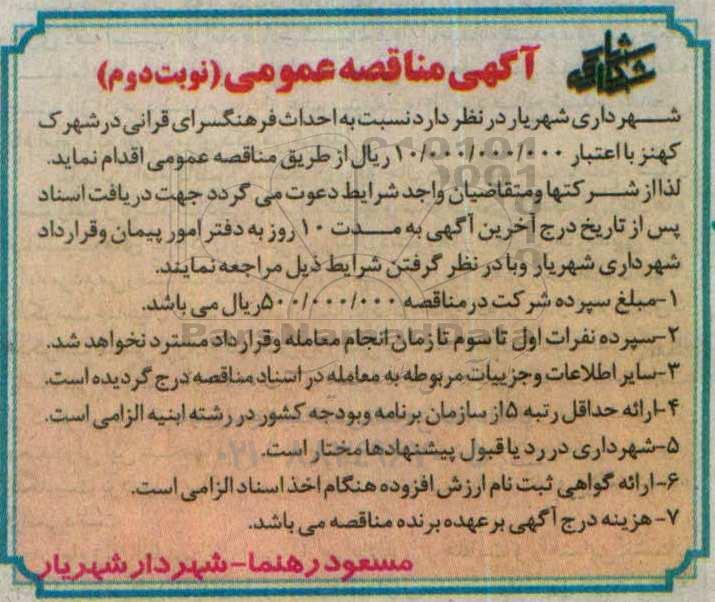 آگهی مناقصه عمومی (نوبت دوم)
شهرداری شهریار در نظر دارد نسبت به احداث فرهنگسرای قرانی در شهرک
کهنز با اعتبار ۱۰/۰۰۰/۰۰۰/۰۰۰ ریال از طریق مناقصه عمومی اقدام نماید.
لذا از شرکتها ومتقاضیان واجد شرایط دعوت می گردد جهت دریافت اسناد
پس از تاریخ درج آخرین آگهی به مدت ۱۰ روز به دفتر امور پیمان وقرارداد
شهرداری شهریار وبا در نظر گرفتن شرایط ذیل مراجعه نمایند.
۱-مبلغ سپرده شرکت در مناقصه ۵۰۰/۰۰۰/۰۰۰ریال می باشد.
۲-سپرده نفرات اول تا سوم تا زمان انجام معامله وقرارداد مسترد نخواهد شد.
۳-سایر اطلاعات وجزییات مربوطه به معامله در اسناد مناقصه درج گردیده است.
۴-ارائه حداقل رتبه ۵از سازمان برنامه وبودجه کشور در رشته ابنیه الزامی است.
۵-شهرداری در رد یا قبول پیشنهادها مختار است.
۶-ارائه گواهی ثبت نام ارزش افزوده هنگام اخذ اسناد الزامی است.
۷-هزینه درج آگهی برعهده برنده مناقصه می باشد.
مسعود رهنما-شهردار شهریار
ParsNamadData